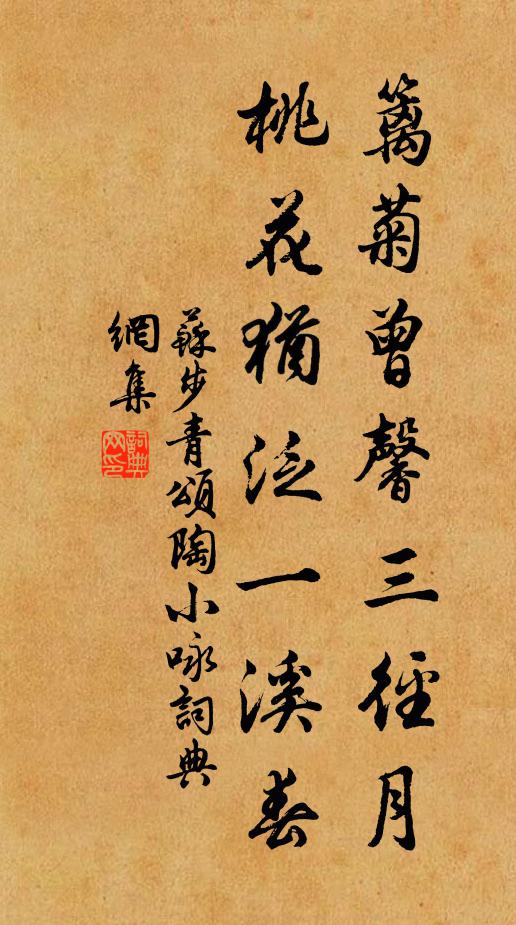 籬菊曾馨三徑月
桃花猶泛一溪春
蘇步青頌陶小咏詞典
網集
詞典
网印